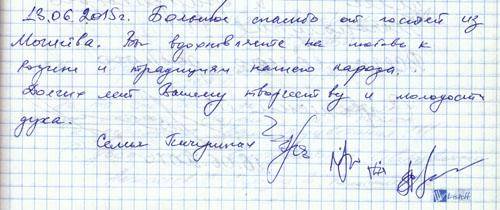 13.06.2015г. Большое спасибо от гостей из
Могилёва. Вы вдохновляете на любовь к
Родине и традициям нашего народа.
Долгих лет Вашему творчеству и молодости
духа.
Семья